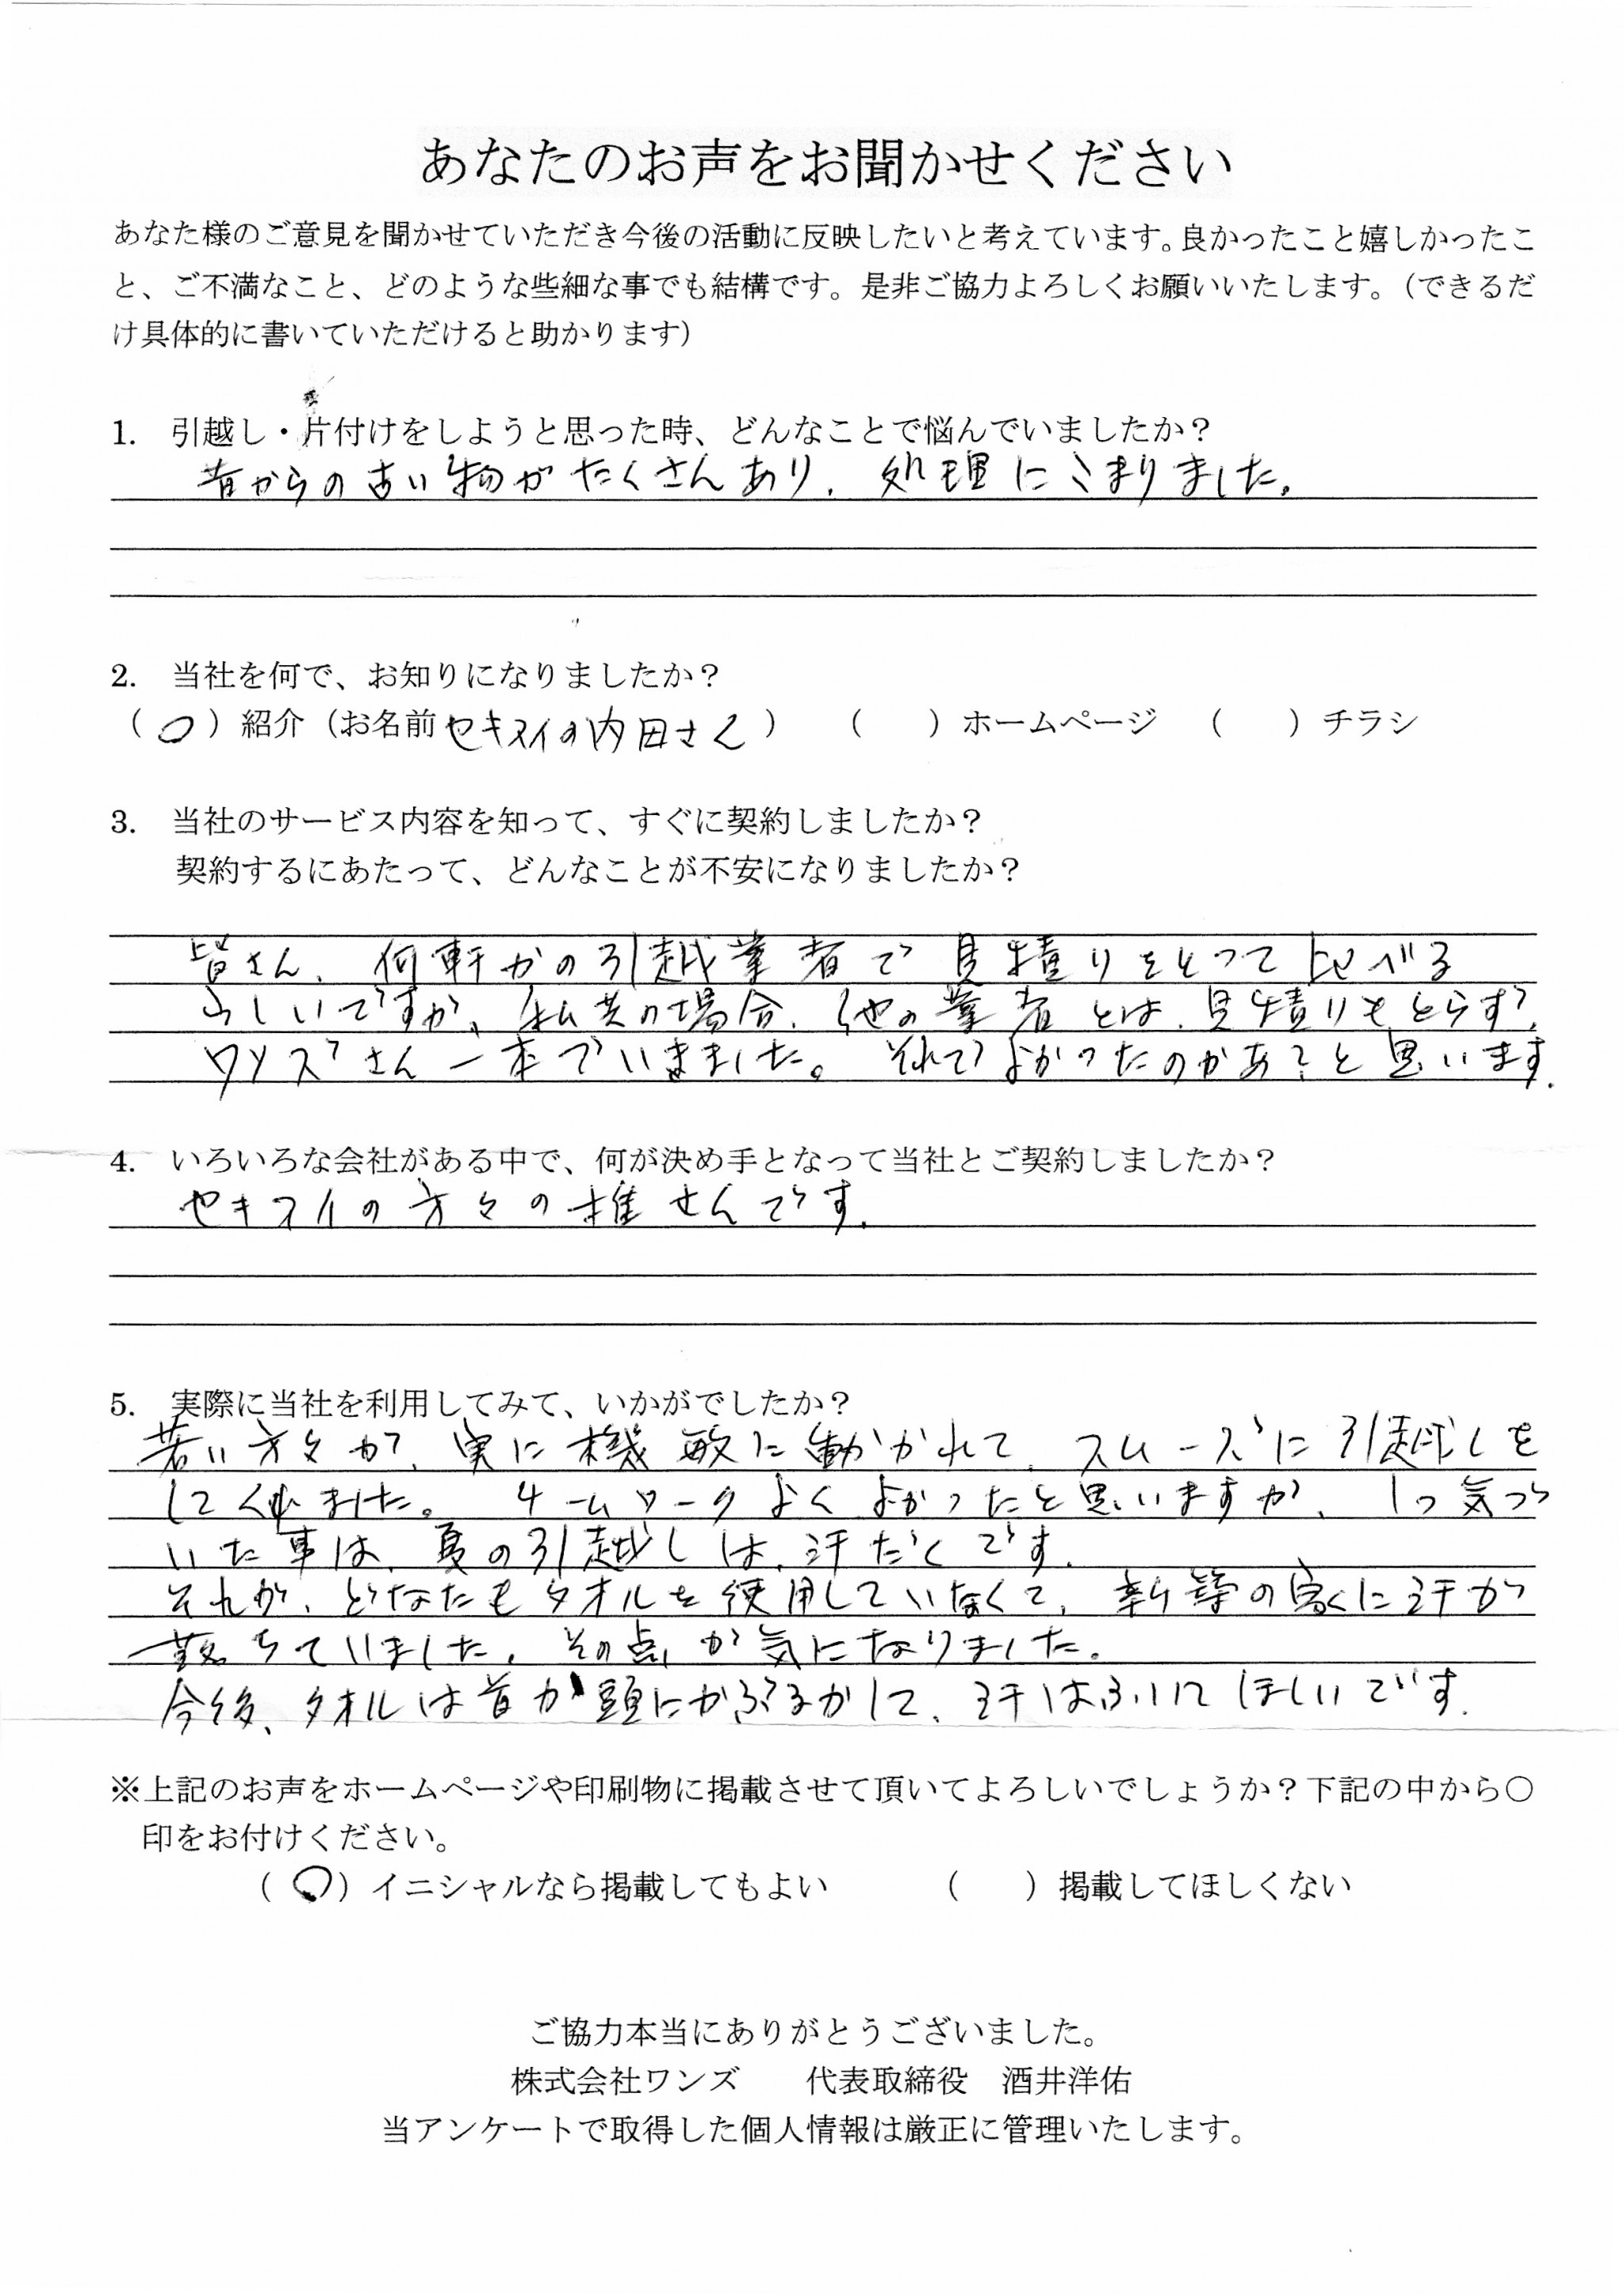 あなたのお声をお聞かせください
あなた様のご意見を聞かせていただき今後の活動に反映したいと考えています。良かったこと嬉しかったこ
と、ご不満なこと、どのような些細な事でも結構です。是非ご協力よろしくお願いいたします。（できるだ
け具体的に書いていただけると助かります）
1. 引越し・片付けをしようと思った時、どんなことで悩んでいましたか？
昔からの古い物がたくさんあり、処理にこまりました。
2. 当社を何で、お知りになりましたか？
（○）紹介（お名前 セキスイの内田さん）　（　）ホームページ　（　）チラシ
3. 当社のサービス内容を知って、すぐに契約しましたか？
契約するにあたって、どんなことが不安になりましたか？
皆さん、何軒かの引越業者で見積りをとって比べる
らしいですが、私共の場合、他の業者とは、見積りもとらず、
ワンズさん一本でいきました。それでよかったのかあ？と思います.
4. いろいろな会社がある中で、何が決め手となって当社とご契約しましたか？
セキスイの方々の推せんです.
5. 実際に当社を利用してみて、いかがでしたか？
若い方々が、実に機敏に働かれて、スムーズに引越しを
してくれました。チームワークよくよかったと思いますが、1つ気づ
いた事は、夏の引越しは、汗だくです.
それが、どなたもタオルを使用していなくて、新築の家に汗が
落ちていました、その点が気になりました。
今後、タオルは首か頭にかぶるかして、汗はふいてほしいです.
※上記のお声をホームページや印刷物に掲載させて頂いてよろしいでしょうか？下記の中から○
印をお付けください。
（○）イニシャルなら掲載してもよい　（　）掲載してほしくない
ご協力本当にありがとうございました。
株式会社ワンズ　代表取締役　酒井洋佑
当アンケートで取得した個人情報は厳正に管理いたします。